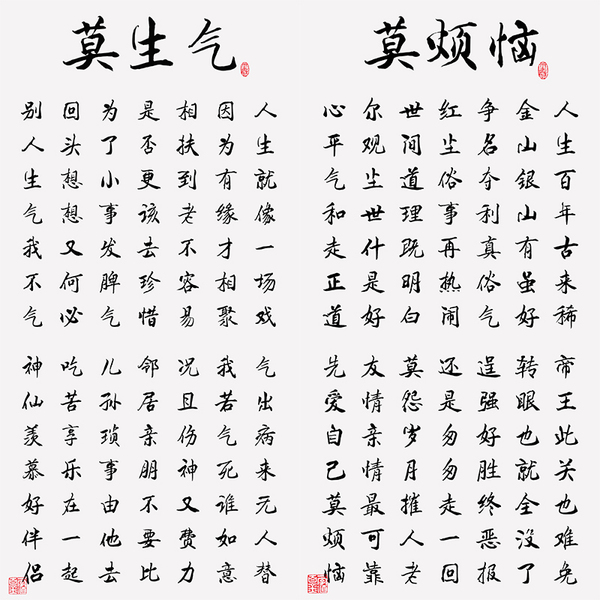 莫生气
人生就像一场戏
因为有缘才相聚
相扶到老不容易
是否更该去珍惜
为了小事发脾气
回头想想又何必
别人生气我不气
气出病来无人替
我若气死谁如意
况且伤神又费力
邻居亲朋不要比
儿孙琐事由他去
吃苦享乐在一起
神仙羡慕好伴侣
莫烦恼
人生百年古来稀
金山银山有虽好
争名夺利真俗气
红尘俗事再热闹
世间道理既明白
尔观尘世什是好
心平气和走正道
帝王此关也难免
转眼也就全没了
逞强好胜终恶报
还是匆匆走一回
莫怨岁月摧人老
友情亲情最可靠
先爱自己莫烦恼